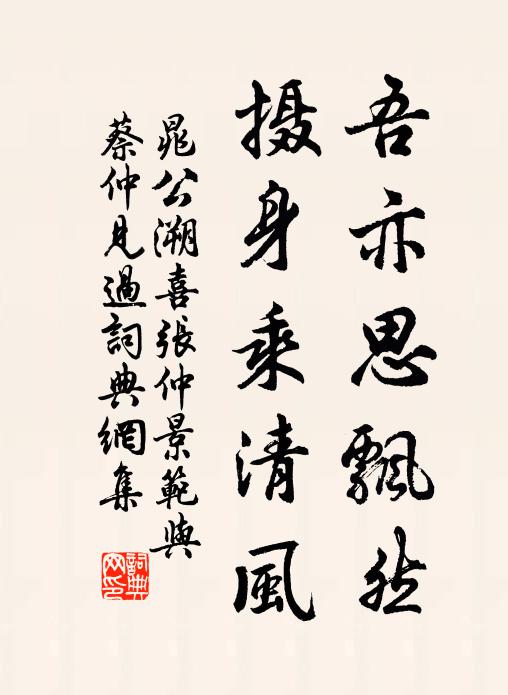 吾亦思飄然
摄身乘清風
晁公溯喜張仲景範與
蔡仲見過詞典網集
詞典网印